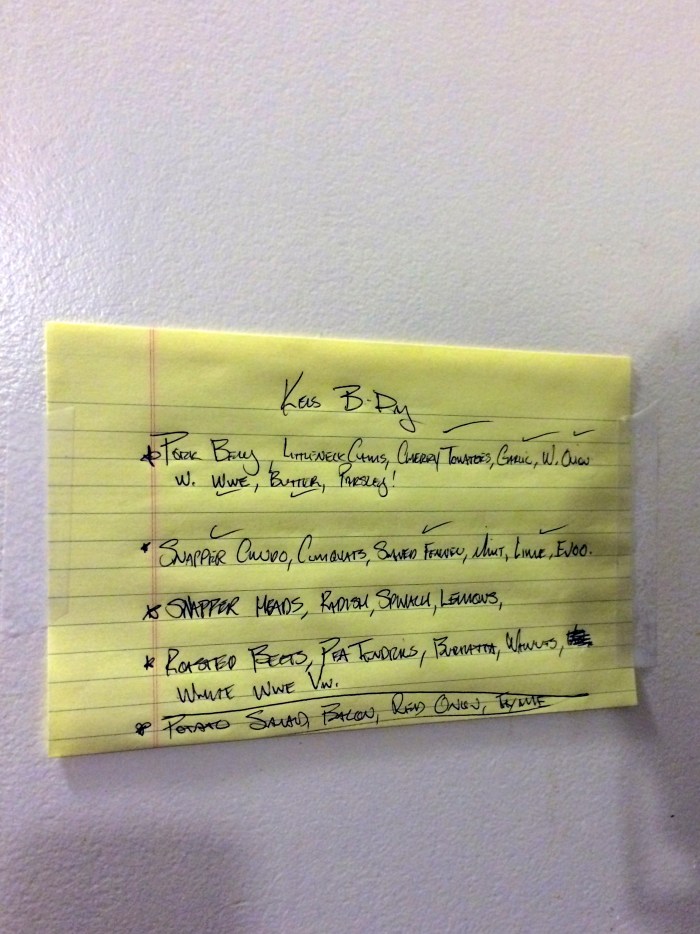 Kels B-Day
* Pork Belly, Littleneck Clams, Cherry Tomatoes, Garlic, W. Onion
W. Wine, Butter, Parsley!
* Snapper Crudo, Cumquats, Shaved Fennel, Mint, Lime, Evoo.
* Snapper Heads, Radish, Spinach, Lemons,
* Roasted Beets, Pea Tendrils, Burratta, Walnuts,
White Wine Vin.
* Potato Salad, Bacon, Red Onion, Thyme